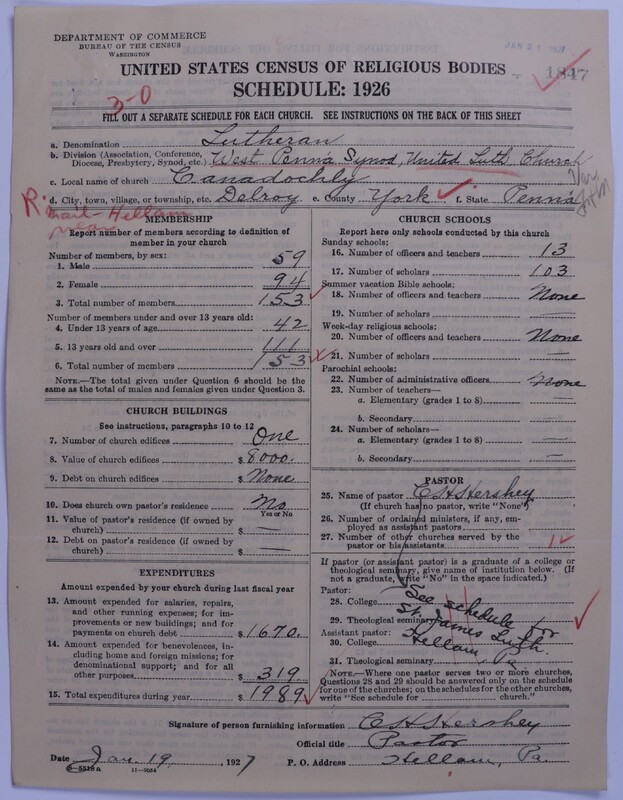 DEPARTMENT OF COMMERCE
BUREAU OF THE CENSUS
WASHINGTON
UNITED STATES CENSUS OF RELIGIOUS BODIES
1847
SCHEDULE: 1926
3-0
FILL OUT A SEPARATE SCHEDULE FOR EACH CHURCH. SEE INSTRUCTIONS ON THE BACK OF THIS SHEET
a. Denomination Lutheran
b. Division (Association, Conference, Diocese, Presbytery, Synod, etc.) West Penna Synod, United Luth Church
c. Local name of church Canadochly
d. City, town, village, or township, etc. Delroy e. County York f. State Penna
R. Hellam
near
MEMBERSHIP
Report number of members according to definition of
member in your church
Number of members, by sex:
1. Male 59
2. Female 94
3. Total number of members 153
Number of members under and over 13 years old:
4. Under 13 years of age 42
5. 13 years old and over 111
6. Total number of members 153
NOTE.—The total given under Question 6 should be the
same as the total of males and females given under Question 3.
CHURCH BUILDINGS
See instructions, paragraphs 10 to 12
7. Number of church edifices One
8. Value of church edifices $ 8000.
9. Debt on church edifices $ None
10. Does church own pastor's residence No
Yes or No
11. Value of pastor's residence (if owned by
church) $ —
12. Debt on pastor's residence (if owned by
church) $ —
EXPENDITURES
Amount expended by your church during last fiscal year
13. Amount expended for salaries, repairs,
and other running expenses; for im-
provements or new buildings; and for
payments on church debt $ 1670.
14. Amount expended for benevolences, in-
cluding home and foreign missions; for
denominational support; and for all
other purposes $ 319
15. Total expenditures during year $ 1989
CHURCH SCHOOLS
Report here only schools conducted by this church
Sunday schools:
16. Number of officers and teachers 13
17. Number of scholars 103
Summer vacation Bible schools:
18. Number of officers and teachers None
19. Number of scholars —
Week-day religious schools:
20. Number of officers and teachers None
21. Number of scholars —
Parochial schools:
22. Number of administrative officers None
23. Number of teachers—
a. Elementary (grades 1 to 8) —
b. Secondary —
24. Number of scholars—
a. Elementary (grades 1 to 8) —
b. Secondary —
PASTOR
25. Name of pastor C H Hershey
(If church has no pastor, write "None")
26. Number of ordained ministers, if any, em-
ployed as assistant pastors
27. Number of other churches served by the
pastor or his assistants 1
If pastor (or assistant pastor) is a graduate of a college or
theological seminary, give name of institution below. (If
not a graduate, write "No" in the space indicated.)
Pastor:
28. College
29. Theological seminary
Assistant pastor:
30. College
31. Theological seminary
See schedule for
St. James Luth.
Hellam, Pa
NOTE.—Where one pastor serves two or more churches,
Questions 28 and 29 should be answered only on the schedule
for one of the churches; on the schedules for the other churches,
write "See schedule for church."
Signature of person furnishing information C H Hershey
Official title Pastor
Date Jan. 19, 1927 P. O. Address Hellam, Pa.
8-5518a 11-9054